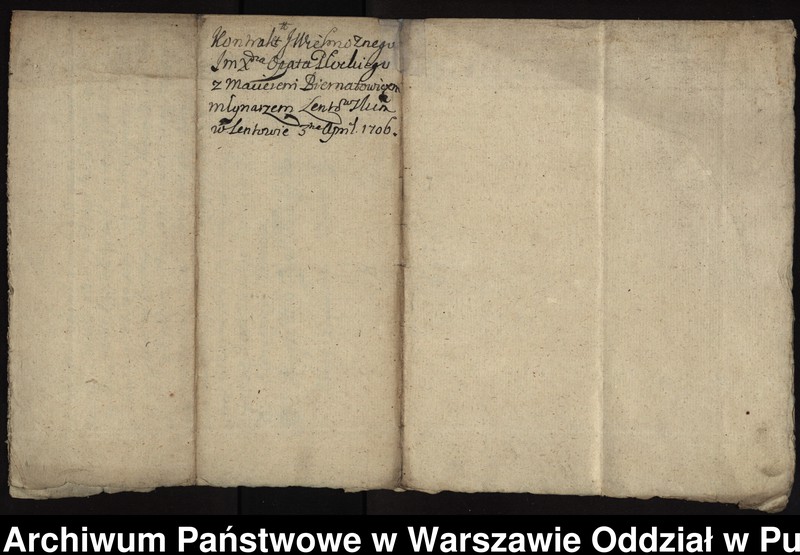 Kontrakt JWielmożnego
Im Xdza Opata Płockiego
z Macieiem Biernatowiczem
młynarzem
w Lentowie 3tia April 1706.
Archiwum Państwowe w Warszawie Oddział w Pu